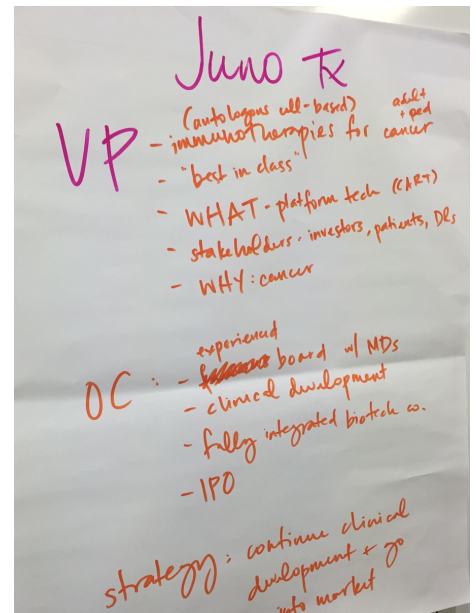 Juno Tx
(autologous cell-based) adult
+ ped
VP - immunotherapies for cancer
- "best in class"
- WHAT - platform tech (CART)
- stakeholders - investors, patients, DRs
- WHY: cancer
experienced
OC: - board w/ MDs
- clinical development
- fully integrated biotech co.
- IPO
strategy: continue clinical
development + go
into market